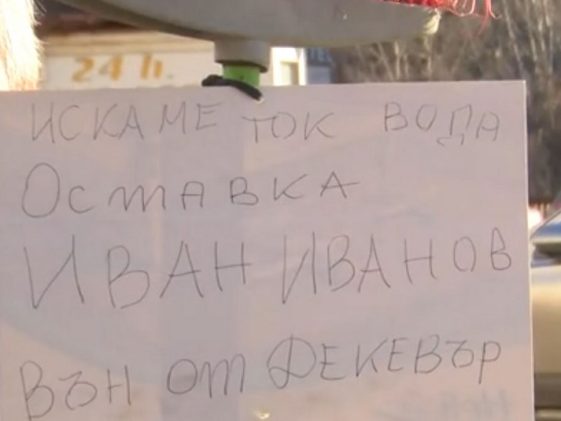 24 h.
ИСКАМЕ ТОК ВОДА
ОСТАВКА
ИВАН ИВАНОВ
ВЪН ОТ ДЕКЕВЪР